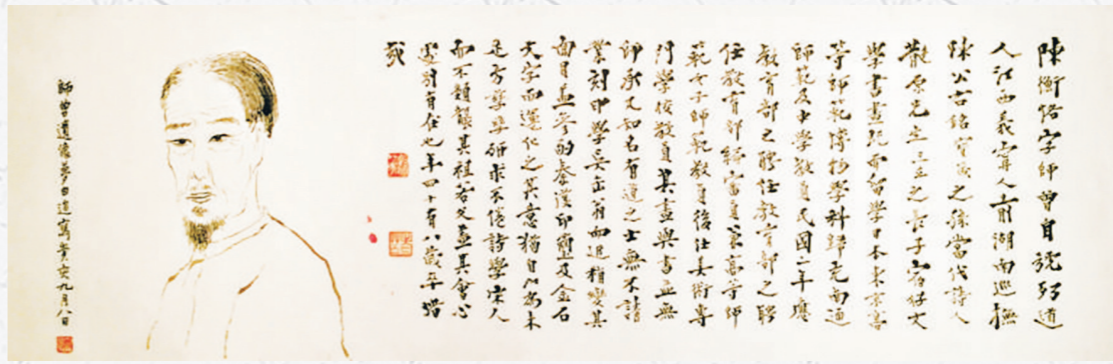 陳衡恪字師曾自號朽道
人江西義寧人前湖南巡撫
陳公右銘寶箴之孫當代詩人
散原先生三立之長子索好文
學書畫既而留學日本東京高
等師範博物學科歸充南通
師範及中學教員民國二年應
教育部之聘任教育部之職
任教育部編審員兼高等師
範女子師範教員後任美術專
門學校教員其畫與書並無
師承又知名有道之士無不請
業刻印學吳缶翁而迥稍變其
面目並參酌秦漢印璽及金石
文字而運化之其意猶自以為未
足方孳孳研求不倦詩學宋人
而不類韻其祖若父蓋其會心
處別有在也年四十有八歲卒惜
哉
師曾遺像夢白追寫癸亥九月八日